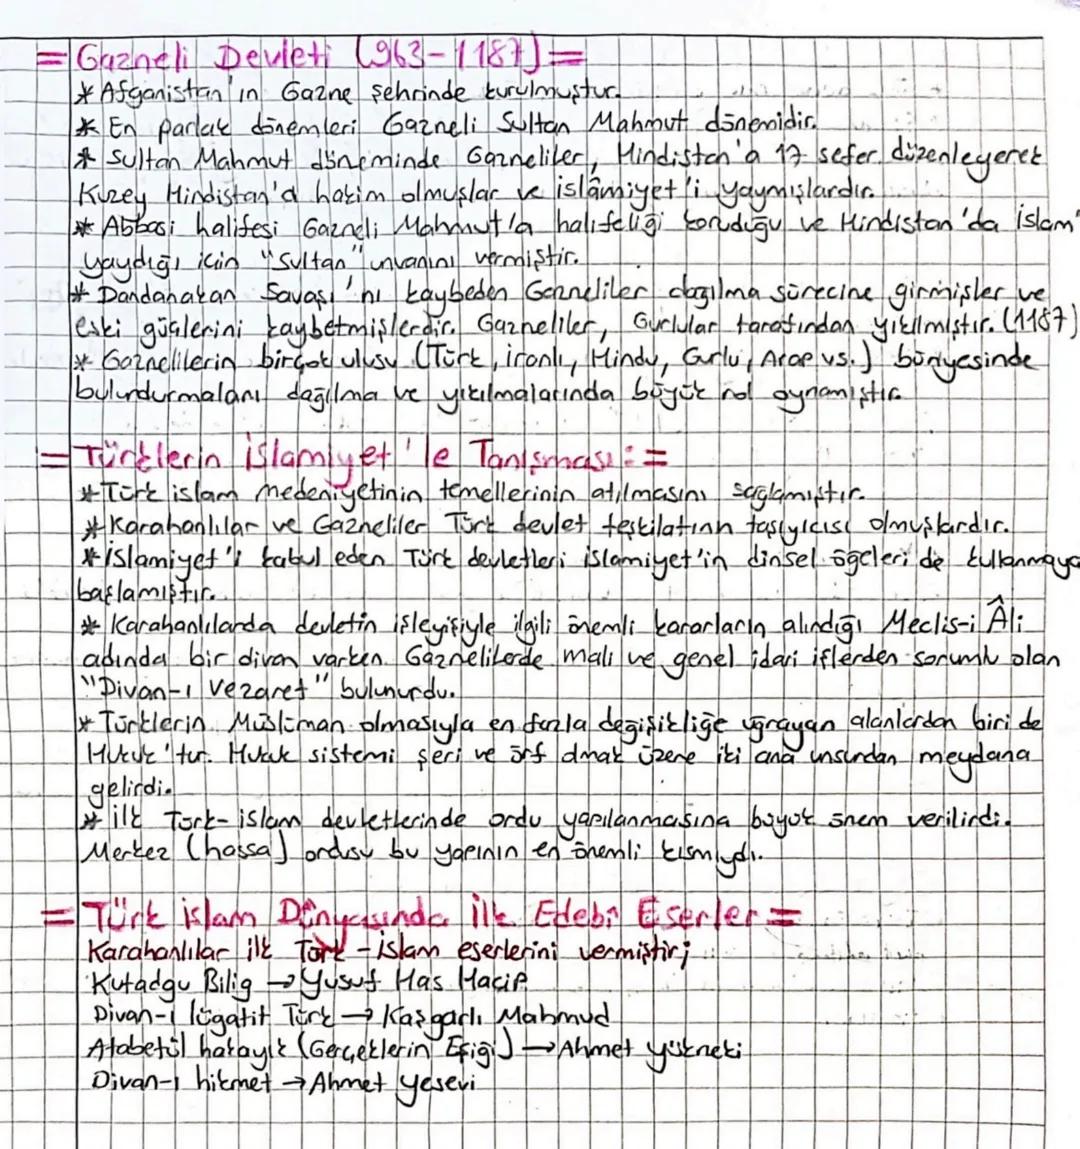 = Gazneli Devleti (963-1187) =
* Afganistan'ın Gazne şehrinde kurulmuştur.
* En parlak dönemleri Gazneli Sultan Mahmut dönemidir.
* Sultan Mahmut döneminde Gazneliler, Hindistan'a 17 sefer düzenleyerek
Kuzey Hindistan'a hakim olmuşlar ve islâmiyet'i yaymışlardır.
* Abbasi halifesi Gazneli Mahmut'a halifeliği koruduğu ve Hindistan'da islam'ı
yaydığı için "Sultan" unvanını vermiştir.
* Dandanakan Savaşı'nı kaybeden Gazneliler dağılma sürecine girmişler ve
eski güçlerini kaybetmişlerdir. Gazneliler, Gurlular tarafından yıkılmıştır. (1187)
* Gaznelilerin birçok ulusu (Türk, iranlı, Hindu, Gurlu, Arap vs.) bünyesinde
bulundurmaları dağılma ve yıkılmalarında büyük rol oynamıştır.
= Türklerin islamiyet'le Tanışması: =
* Türk islam medeniyetinin temellerinin atılmasını sağlamıştır.
* Karahanlılar ve Gazneliler Türk devlet teşkilatının taşıyıcısı olmuşlardır.
* islamiyet'i kabul eden Türk devletleri islamiyet'in dinsel ögeleri de kullanmaya
başlamıştır.
* Karahanlılarda devletin işleyişiyle ilgili önemli kararların alındığı Meclis-i Âli
adında bir divan varken Gaznelilerde mali ve genel idari işlerden sorumlu olan
"Divan-ı Vezaret" bulunurdu.
* Türklerin Müslüman olmasıyla en fazla değişikliğe uğrayan alanlardan biri de
Hukuk'tur. Hukuk sistemi şeri ve örf olmak üzere iki ana unsurdan meydana
gelirdi.
* ilk Türk-islam devletlerinde ordu yapılanmasına büyük önem verilirdi.
Merkez (hassa) ordusu bu yapının en önemli kısmıydı.
= Türk islam Dünyasında ilk Edebi Eserler =
Karahanlılar ilk Türk-islam eserlerini vermiştir;
Kutadgu Bilig → Yusuf Has Hacip
Divan-ı lügatit Türk → Kaşgarlı Mahmud
Atabetül hakayık (Gerçeklerin Eşiği) → Ahmet yükneki
Divan-ı hikmet → Ahmet yesevi